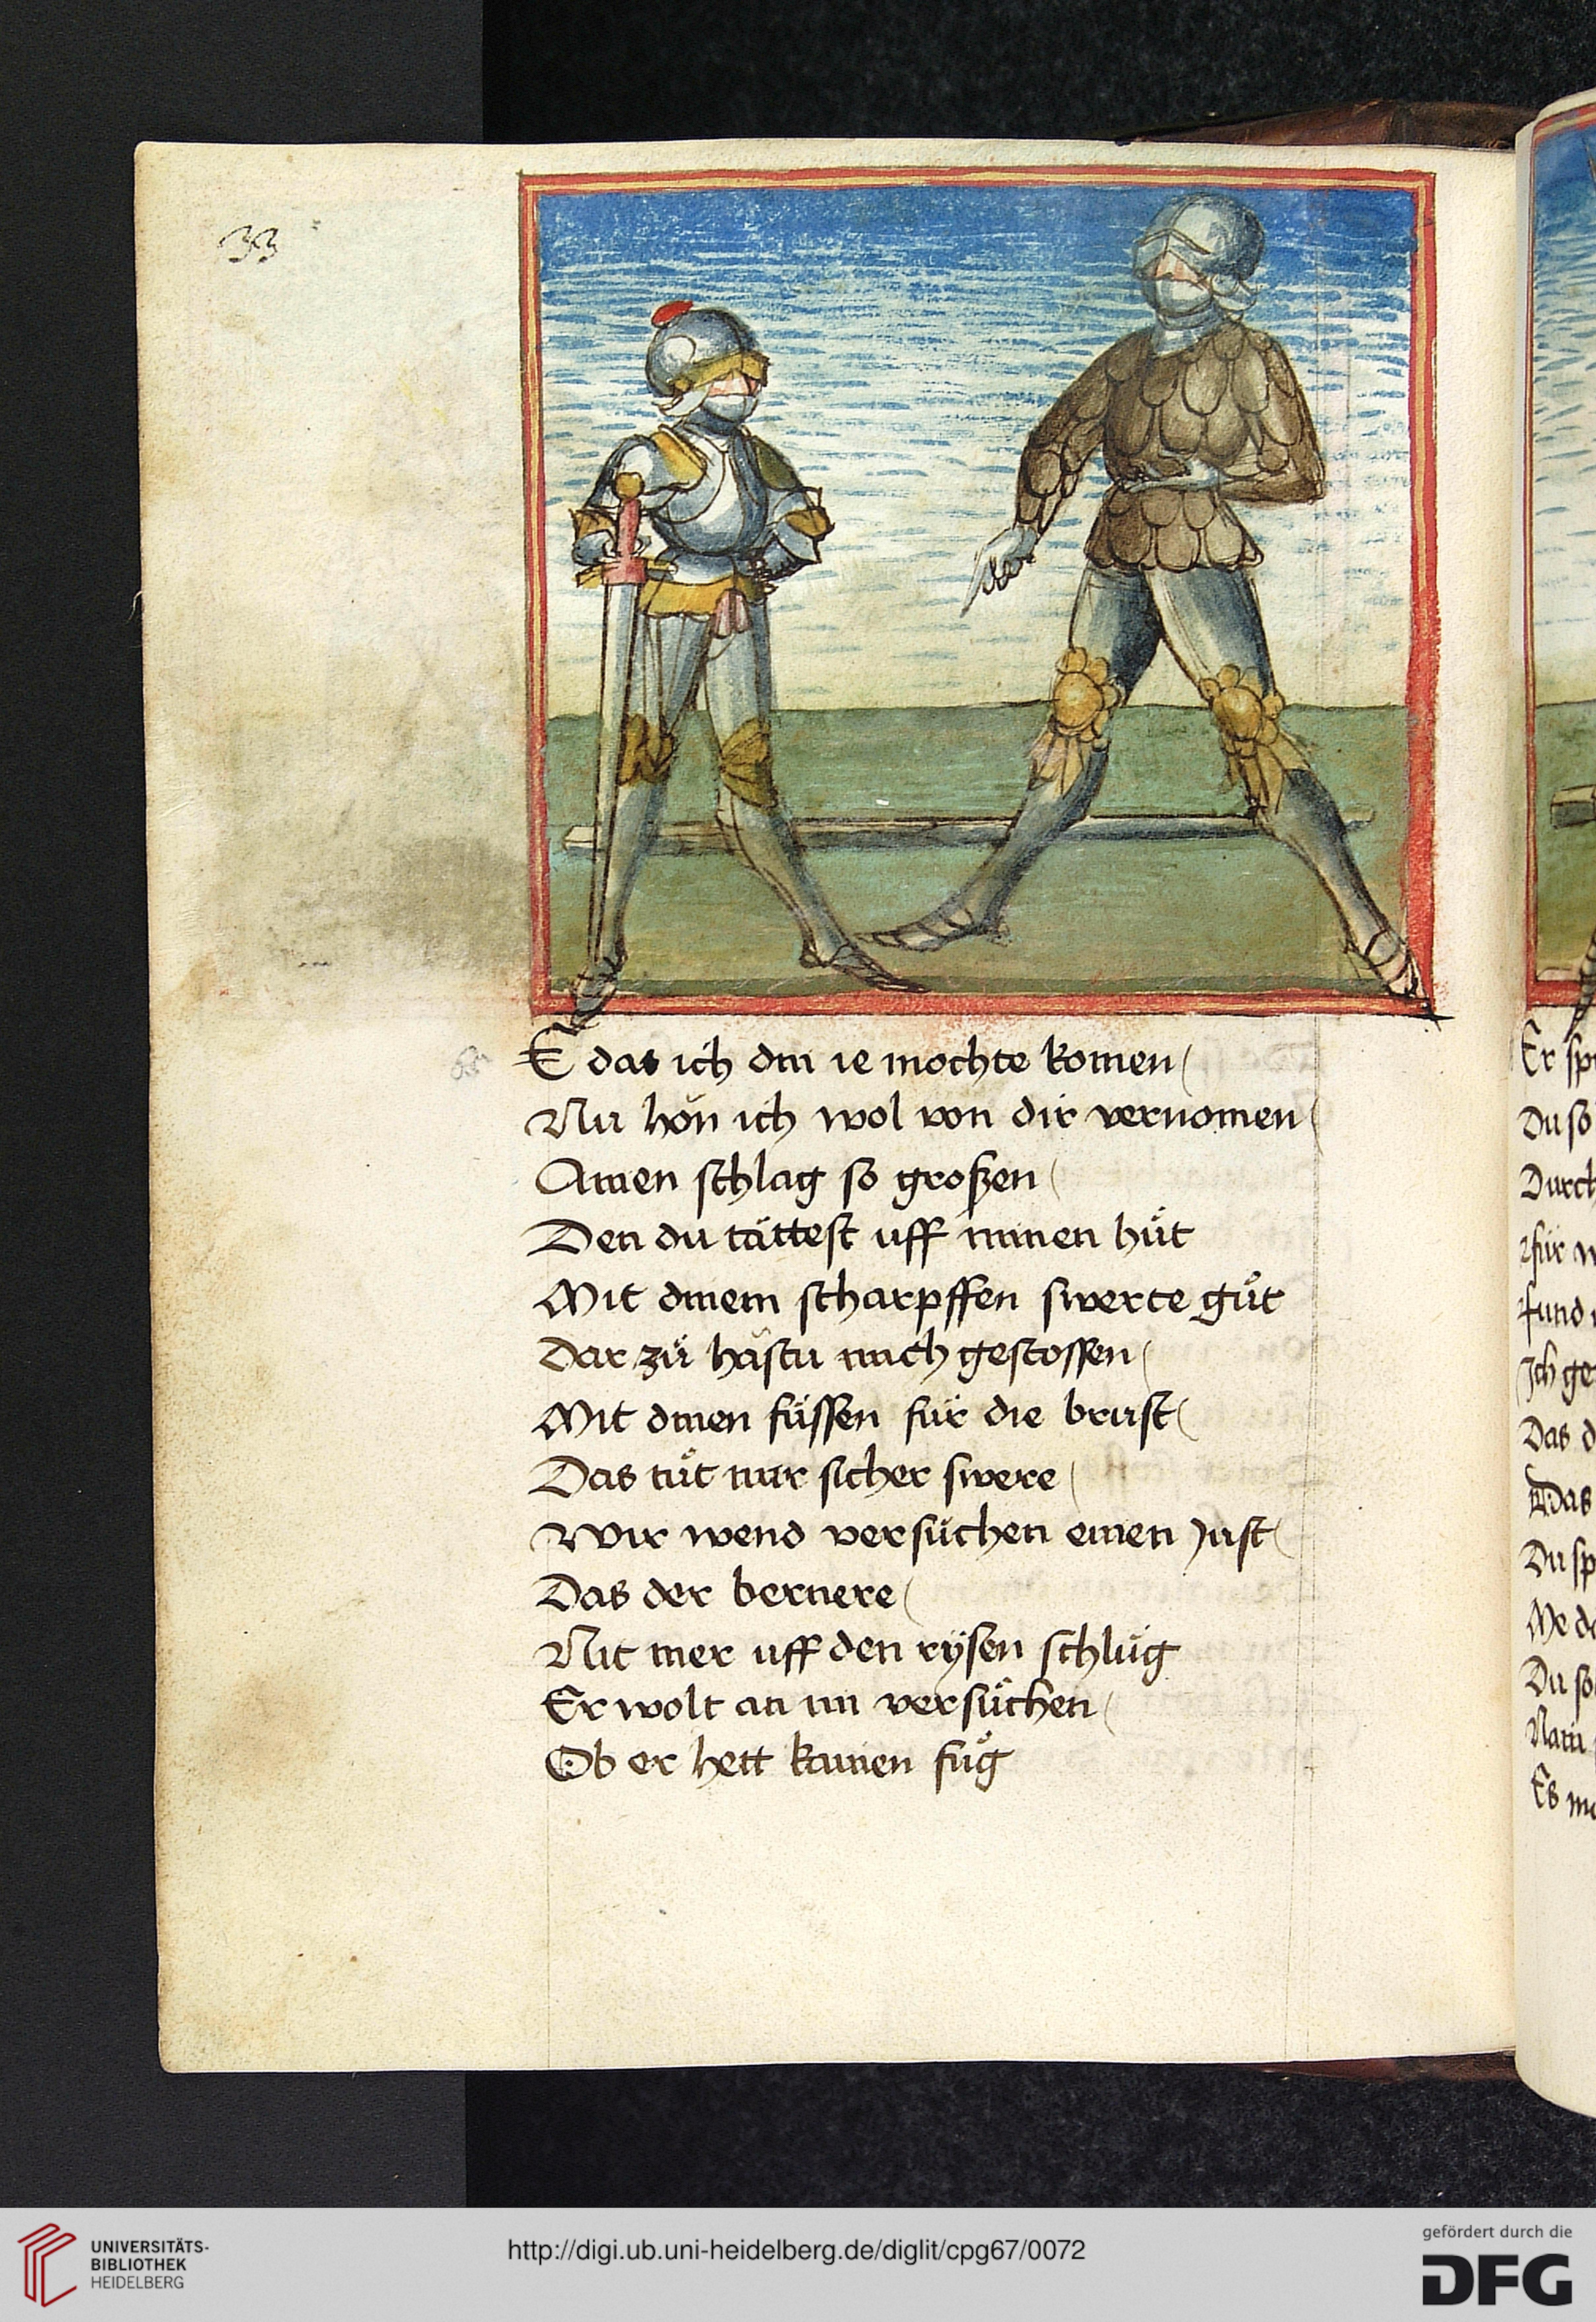 33
E das ich din ie mochte komen
Nu hon ich wol von dir vernomen
Ainen schlag so großen
Den du tättest uff minen hůt
Mit dinem scharpffen swerte gůt
Dar zů hastu mich gestossen
Mit dinen füssen für die brust
Das tůt mir sicher swere
Wir wend versůchen einen Just
Das der bernere
Nit mer uff den rysen schlůg
Er wolt an im versůchen
Ob er hett kainen fůg
Er sp
Du so
Durch
für w
fund
Ich ge
Das d
Das
Du sp
Me de
Du so
Es me
UNIVERSITÄTS-
BIBLIOTHEK
HEIDELBERG
http://digi.ub.uni-heidelberg.de/diglit/cpg67/0072
gefördert durch die
DFG